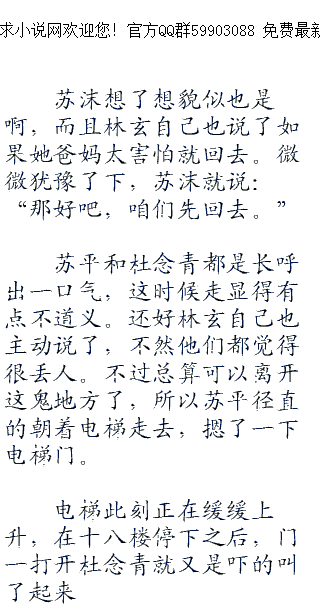 求小说网欢迎您！官方QQ群59903088 免费最新
苏沫想了想貌似也是
啊，而且林玄自己也说了如
果她爸妈太害怕就回去。微
微犹豫了下，苏沫就说：
“那好吧，咱们先回去。”
苏平和杜念青都是长呼
出一口气，这时候走显得有
点不道义。还好林玄自己也
主动说了，不然他们都觉得
很丢人。不过总算可以离开
这鬼地方了，所以苏平径直
的朝着电梯走去，摁了一下
电梯门。
电梯此刻正在缓缓上
升，在十八楼停下之后，门
一打开杜念青就又是吓的叫
了起来